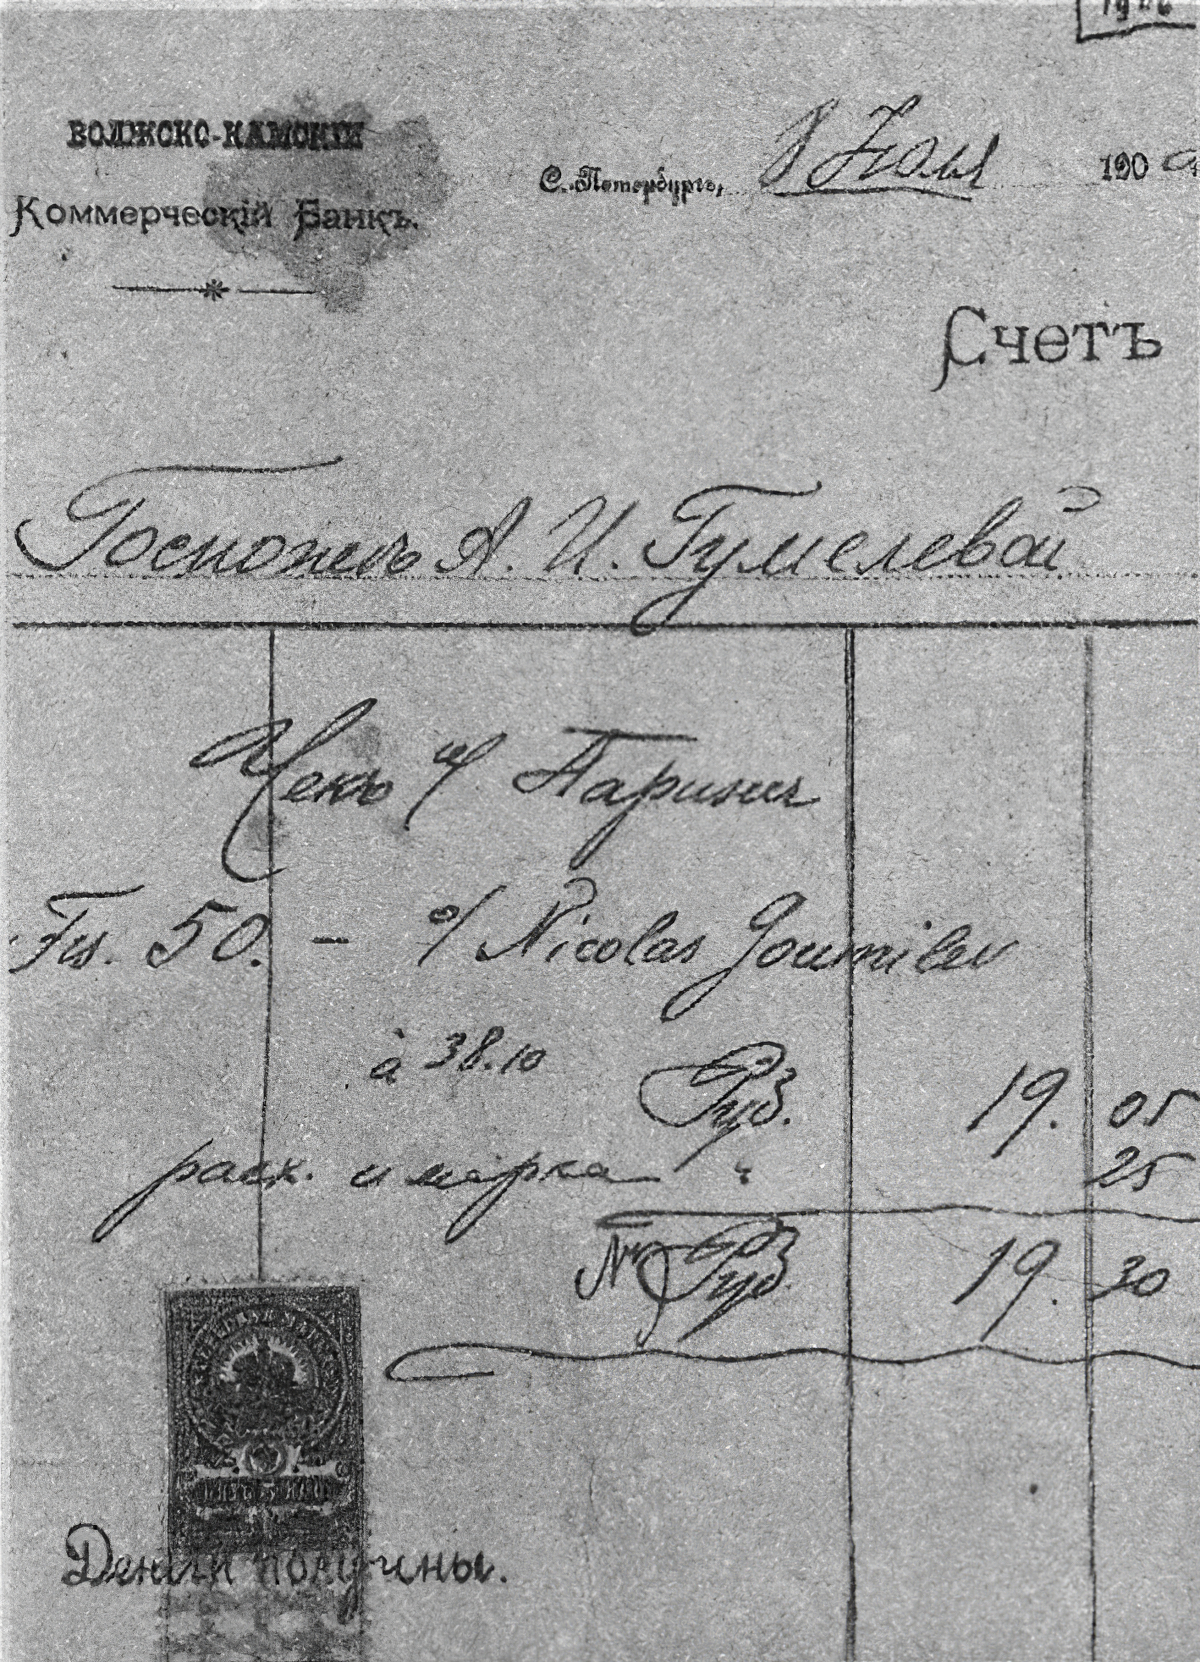 ВОЛЖСКО-КАМСКІЙ
Коммерческій Банкъ.
С.-Петербургъ, 8 Іюля 190
Счетъ
Госпожѣ А. И. Гумелевой
Чекъ н/ Парижъ
Frs. 50. — o/ Nicolas Goumilev
à 38.10
Руб. 19. 05
расх. и марка " 25
Руб. 19. 30
Деньги получены.